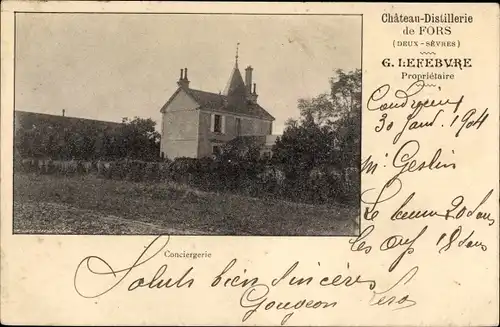 Château-Distillerie
de FORS
(DEUX-SÈVRES)
G. LEFEBVRE
Propriétaire
30 Janv. 1904
Mr Geslin
Le beurre 20 sous
les œufs 18 sous
Conciergerie
Saluts bien sincères
Gougeon